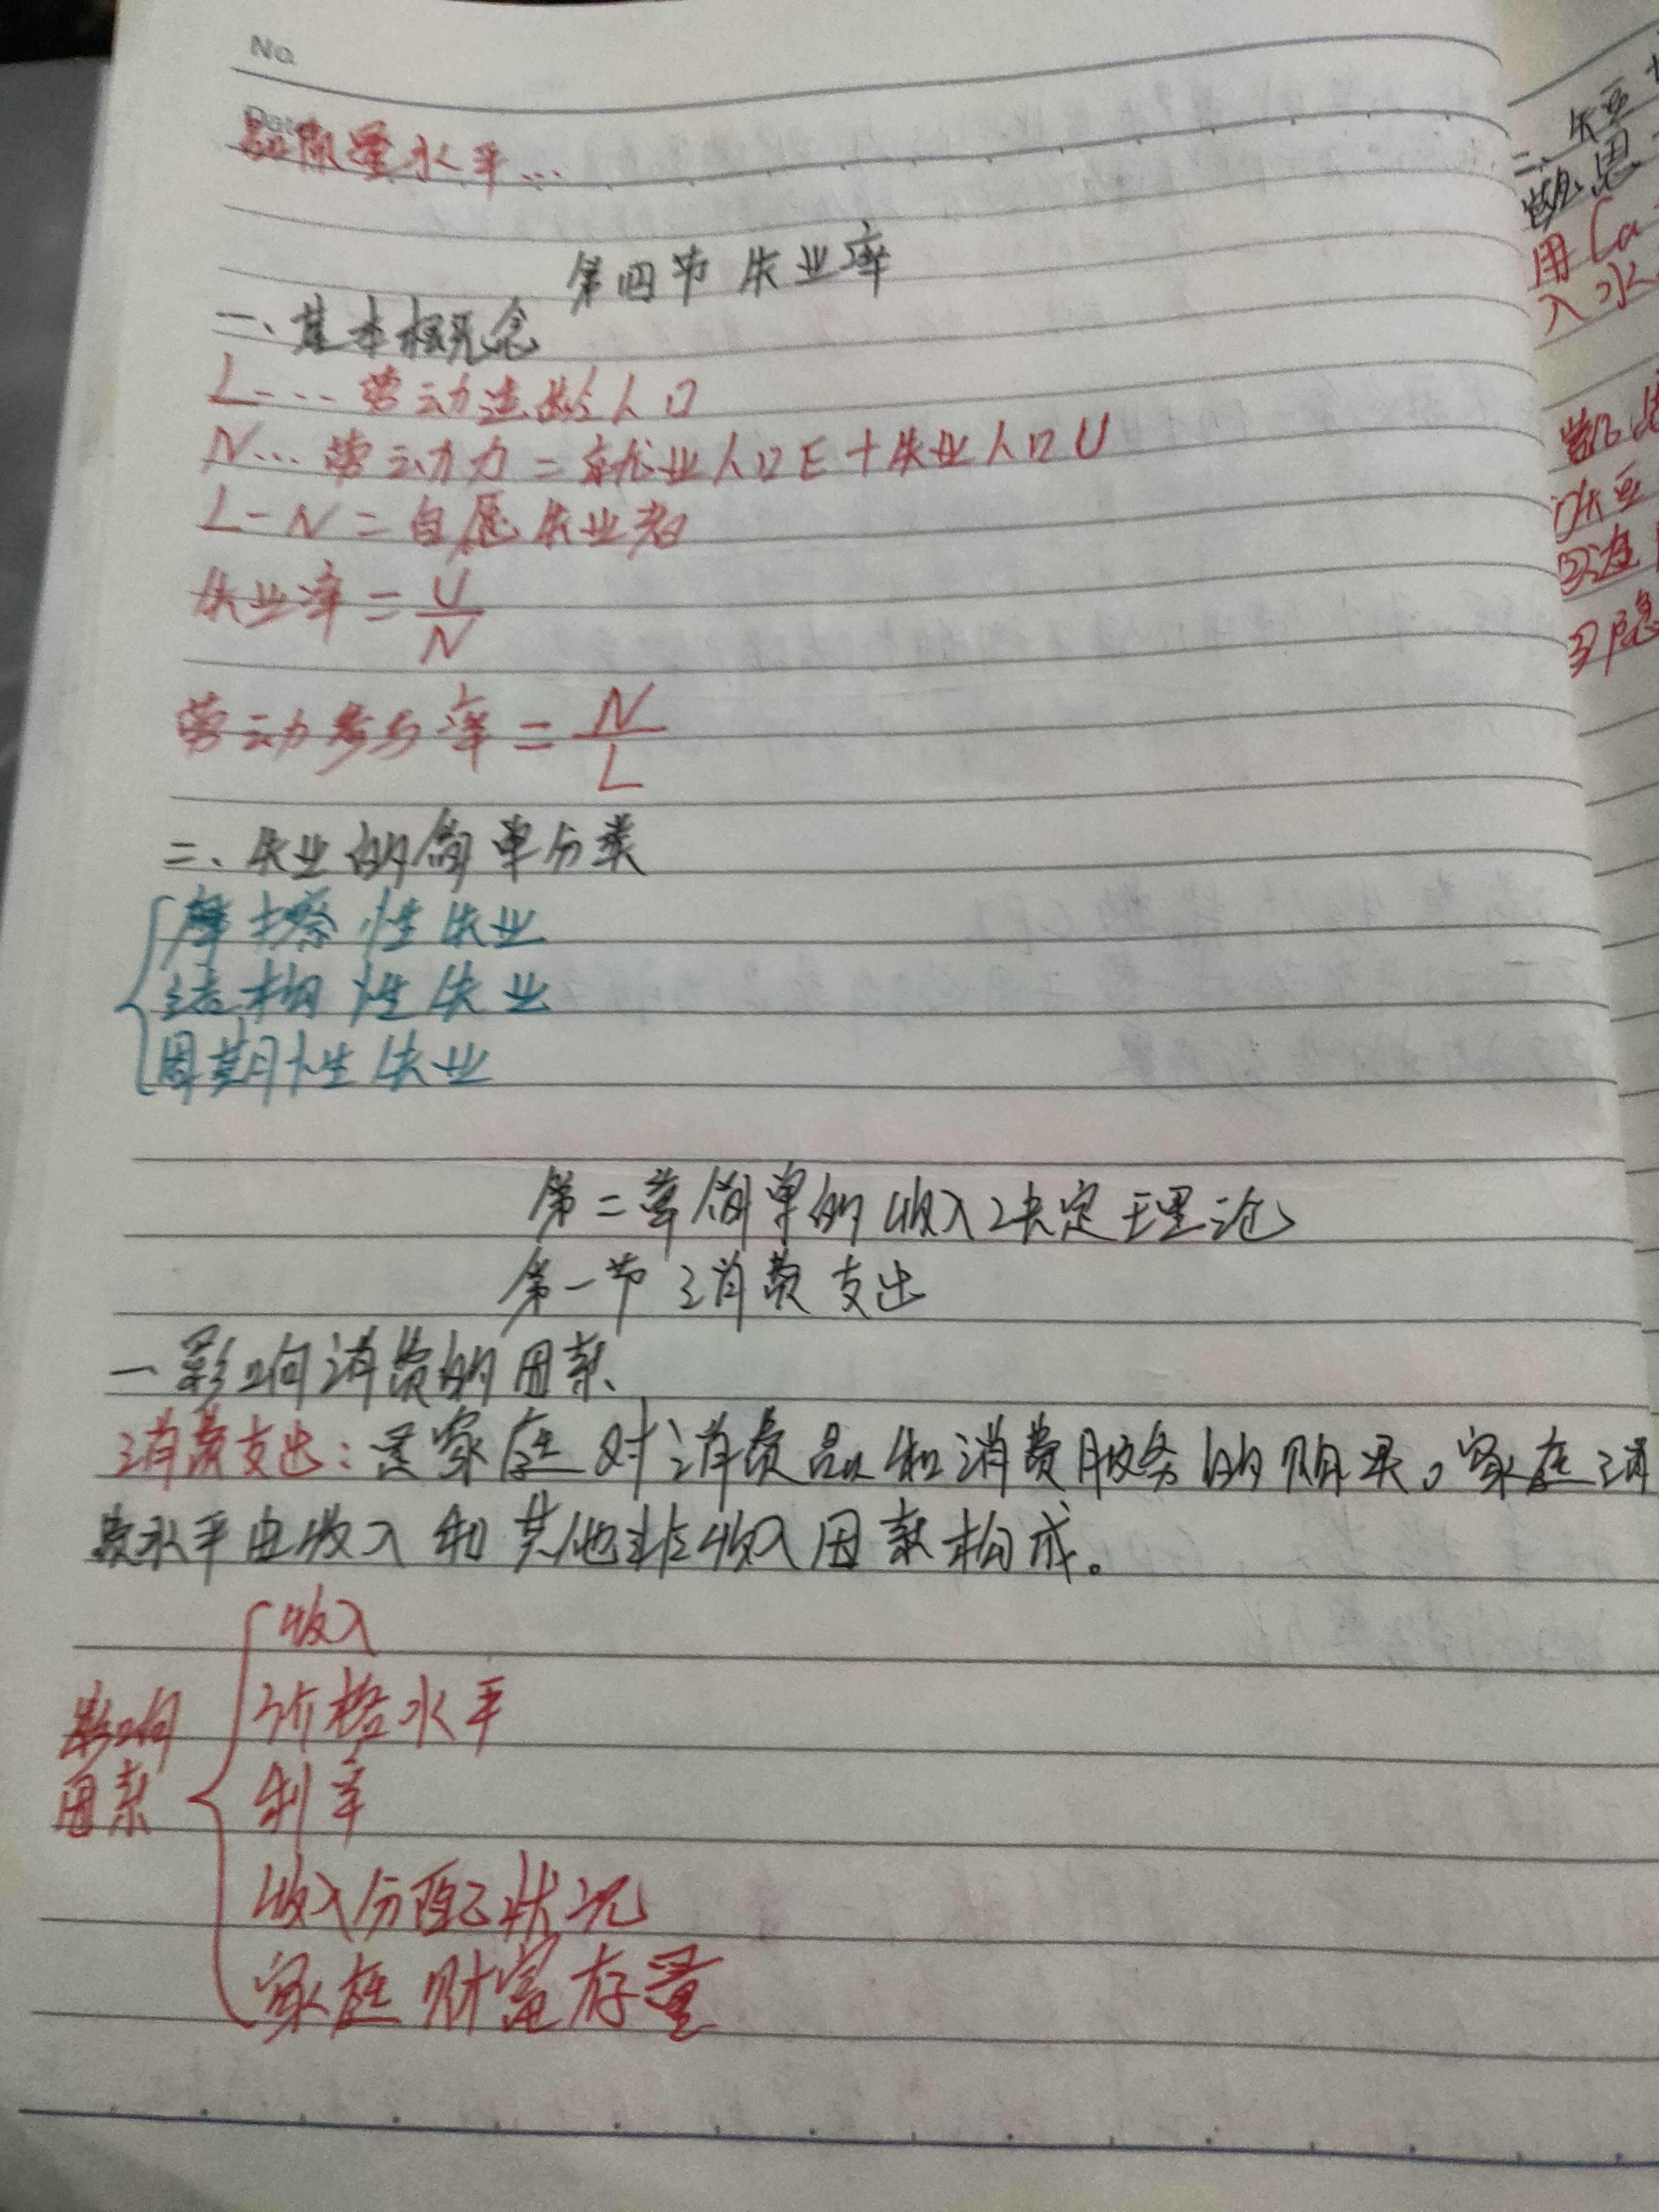 No.
Date
水平...
第四节 失业率
一、基本概念
L... 劳动适龄人口
N... 劳动力=就业人口E+失业人口U
L-N=自愿失业者
失业率=U/N
劳动参与率=N/L
二、失业的简单分类
摩擦性失业
结构性失业
周期性失业
第二章简单的收入决定理论
第一节 消费支出
一影响消费的因素、
消费支出:是家庭对消费品和消费服务的购买。家庭消
费水平由收入和其他非收入因素构成。
影响因素
收入
价格水平
利率
收入分配状况
家庭财富存量
二、失豆
用Ca
入水
①失豆
②造
③隐